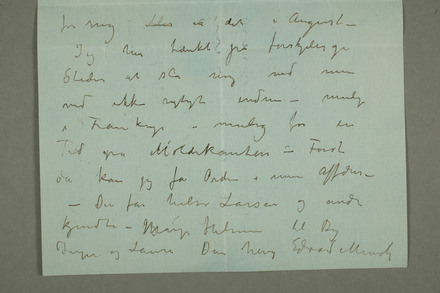 for mig
i August –
Jeg har tænkt på forskjelige
Steder at slå mig ned men
ved ikke rigtigt endnu – mulig
i Frankrige – mulig for en
Tid på Moldekanten – Først
da kan jeg få Orden i mine affærer –
– Du får hilse Larsen og andre
kjendte – Mange Hilsener til Dig
Inger og Laura Din heng Edvard Munch